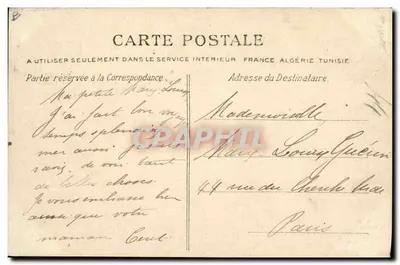 CARTE POSTALE
A UTILISER SEULEMENT DANS LE SERVICE INTERIEUR FRANCE ALGÉRIE TUNISIE
Partie réservée à la Correspondance
Adresse du Destinataire.
Ma petite Mary Louise
J'ai fait bon voyage
temps splendide
mer aussi je suis
ravie de voir tant
de belles choses
Je vous embrasse bien
ainsi que votre
maman
CPAPHIL
Mademoiselle
Mary Guerin
44 rue du Cherche Midi
Paris